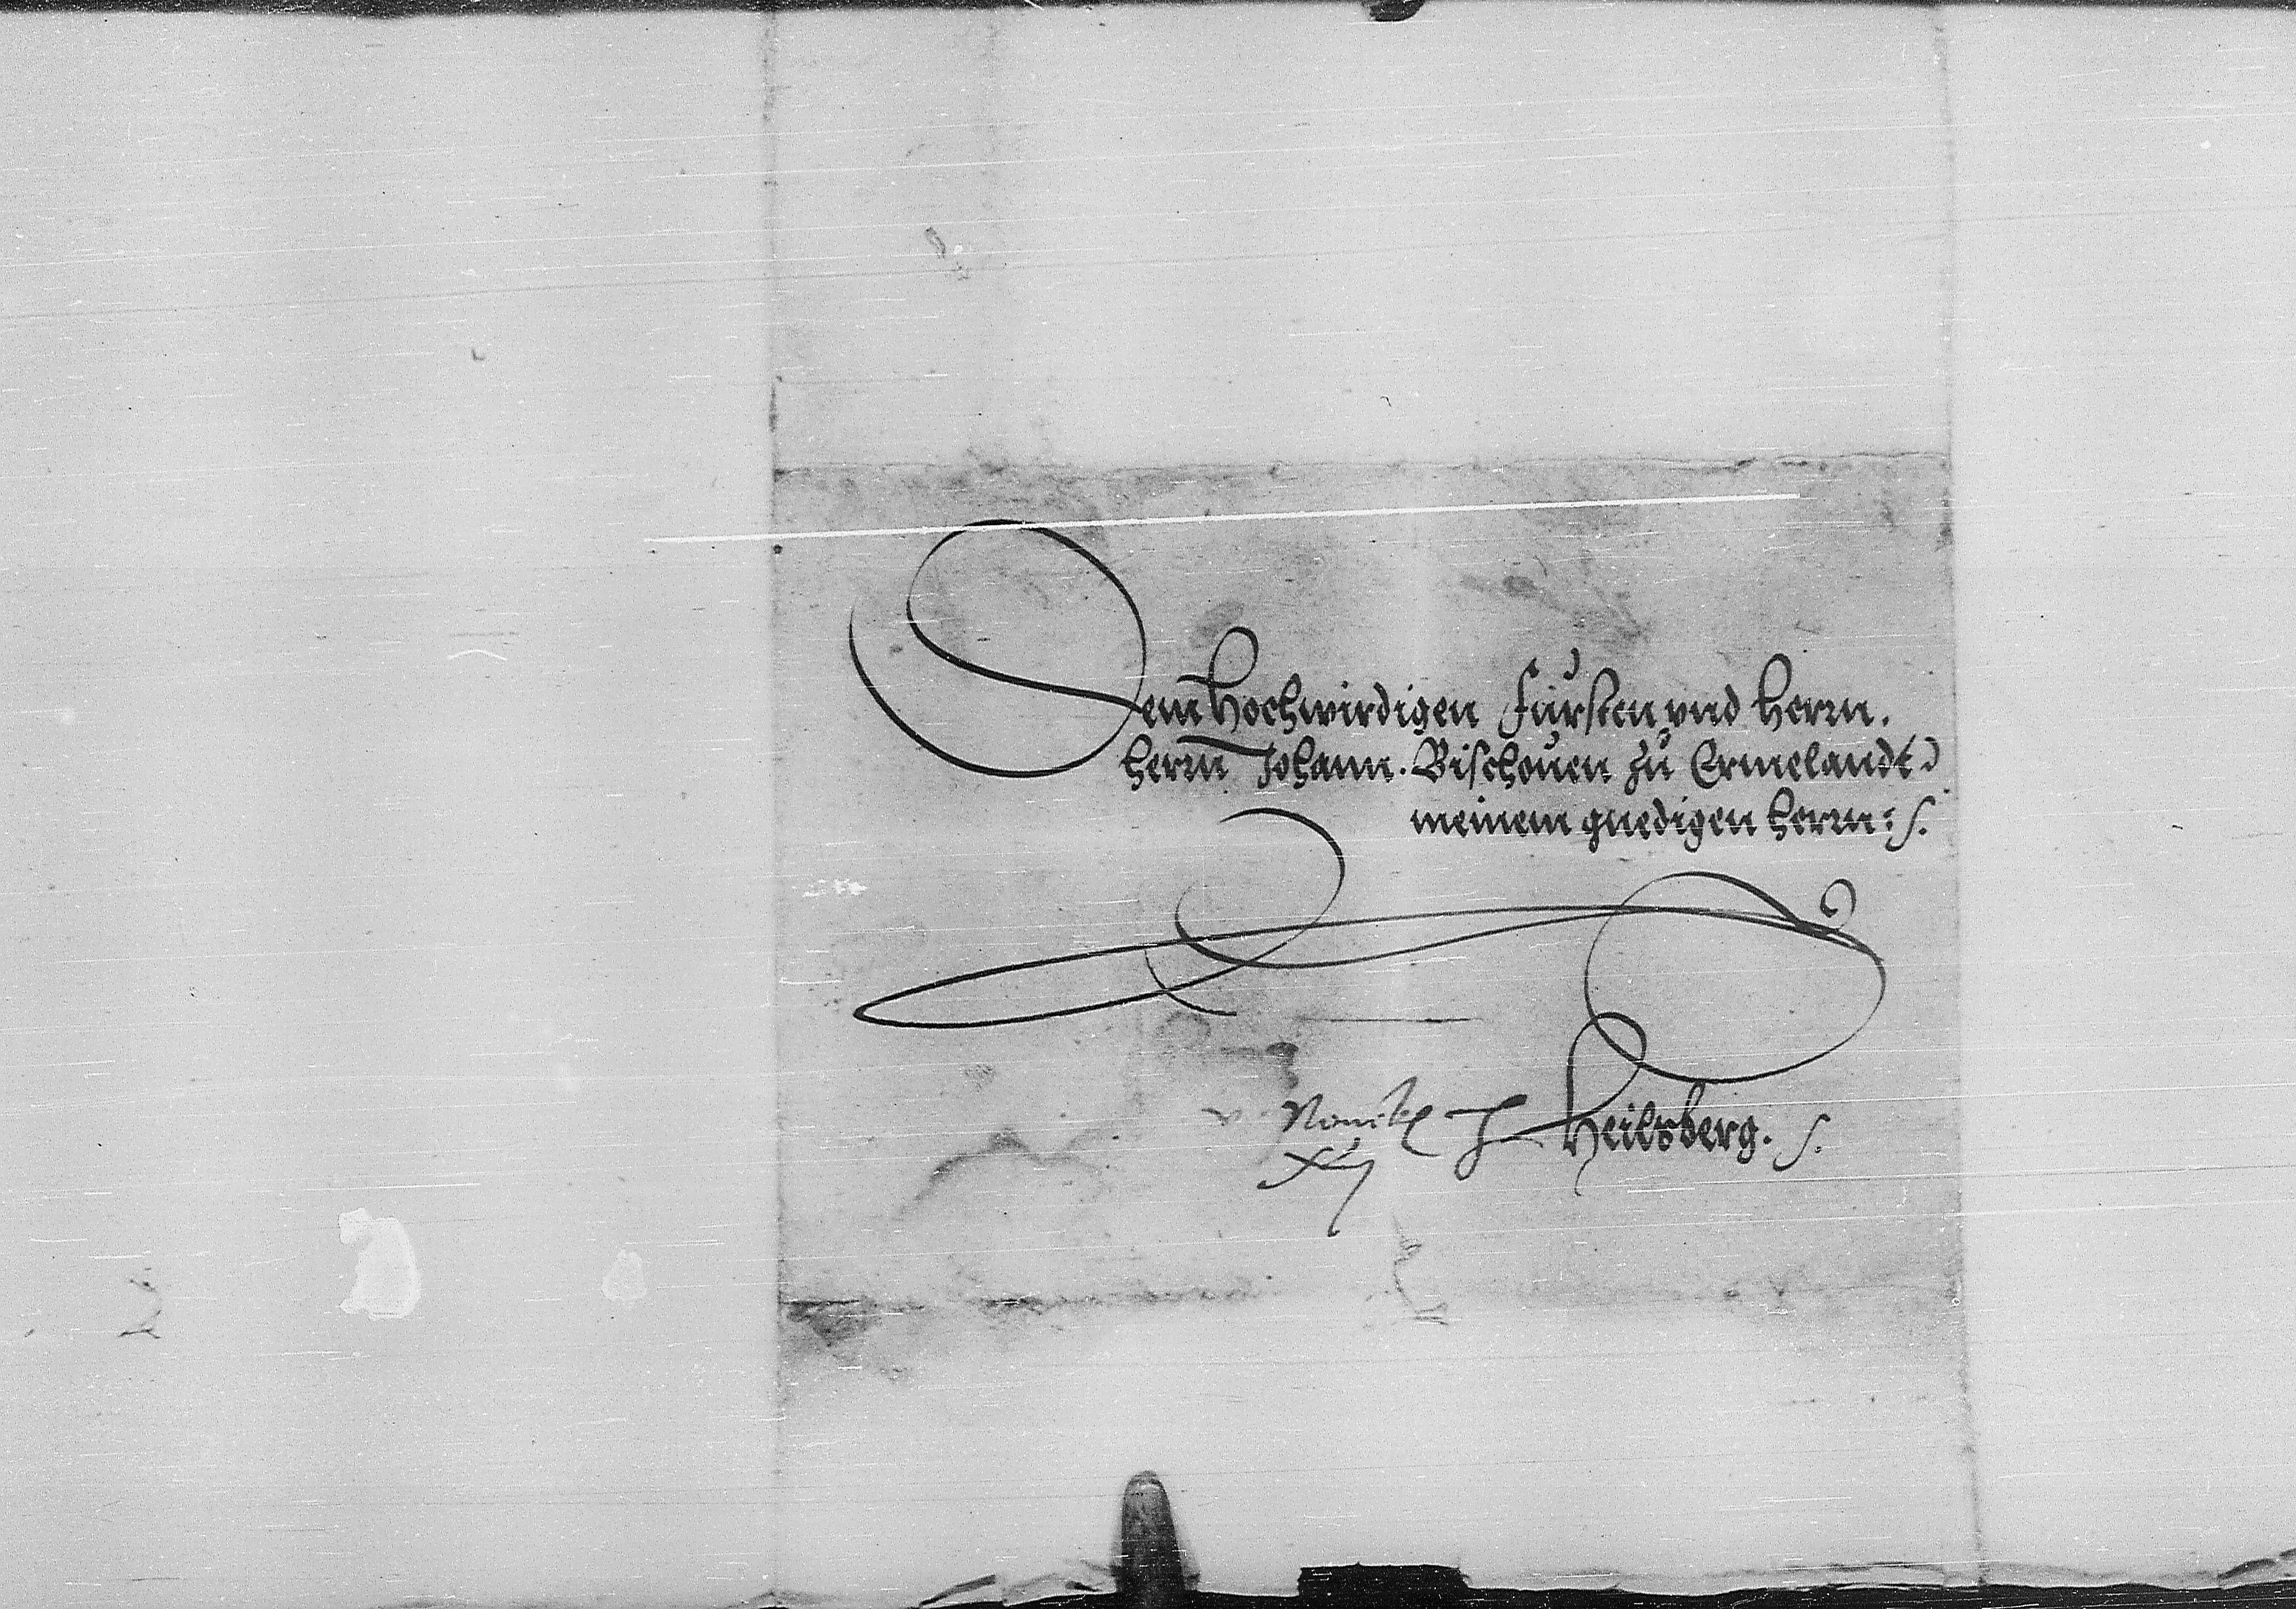 Dem Hochwirdigen Fürsten vnd Herrn.
Herrn Johann. Bischouen zů Ermelandt
meinem gnedigen Herrn: s.
Heilsberg. s.